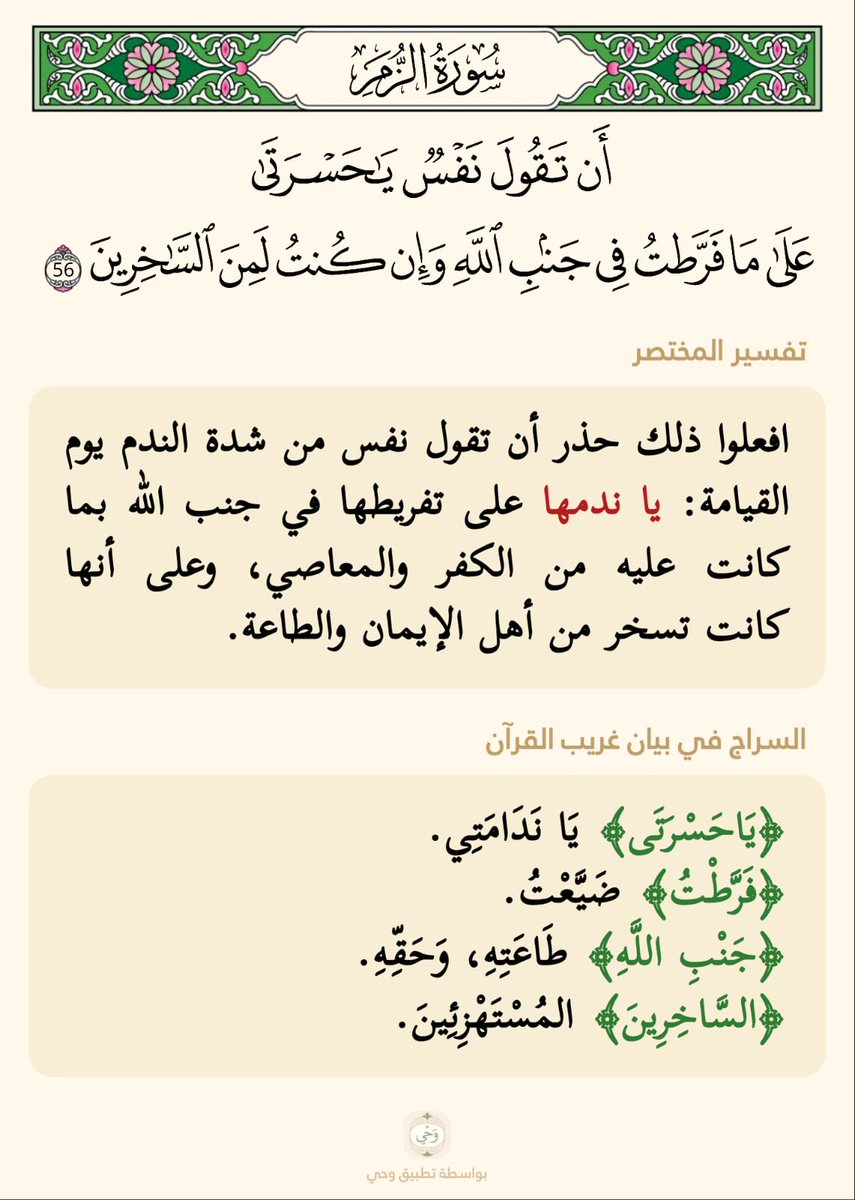 سُورَةُ الزُّمَرِ
أَن تَقُولَ نَفْسٌ يَـٰحَسْرَتَىٰ
عَلَىٰ مَا فَرَّطتُ فِى جَنۢبِ ٱللَّهِ وَإِن كُنتُ لَمِنَ ٱلسَّـٰخِرِينَ 56
تفسير المختصر
افعلوا ذلك حذر أن تقول نفس من شدة الندم يوم
القيامة: يا ندمها على تفريطها في جنب الله بما
كانت عليه من الكفر والمعاصي، وعلى أنها
كانت تسخر من أهل الإيمان والطاعة.
السراج في بيان غريب القرآن
﴿يَاحَسْرَتَى﴾ يَا نَدَامَتِي.
﴿فَرَّطْتُ﴾ ضَيَّعْتُ.
﴿جَنْبِ اللَّهِ﴾ طَاعَتِهِ، وَحَقِّهِ.
﴿السَّاخِرِينَ﴾ المُسْتَهْزِئِينَ.
وَحْي
بواسطة تطبيق وحي